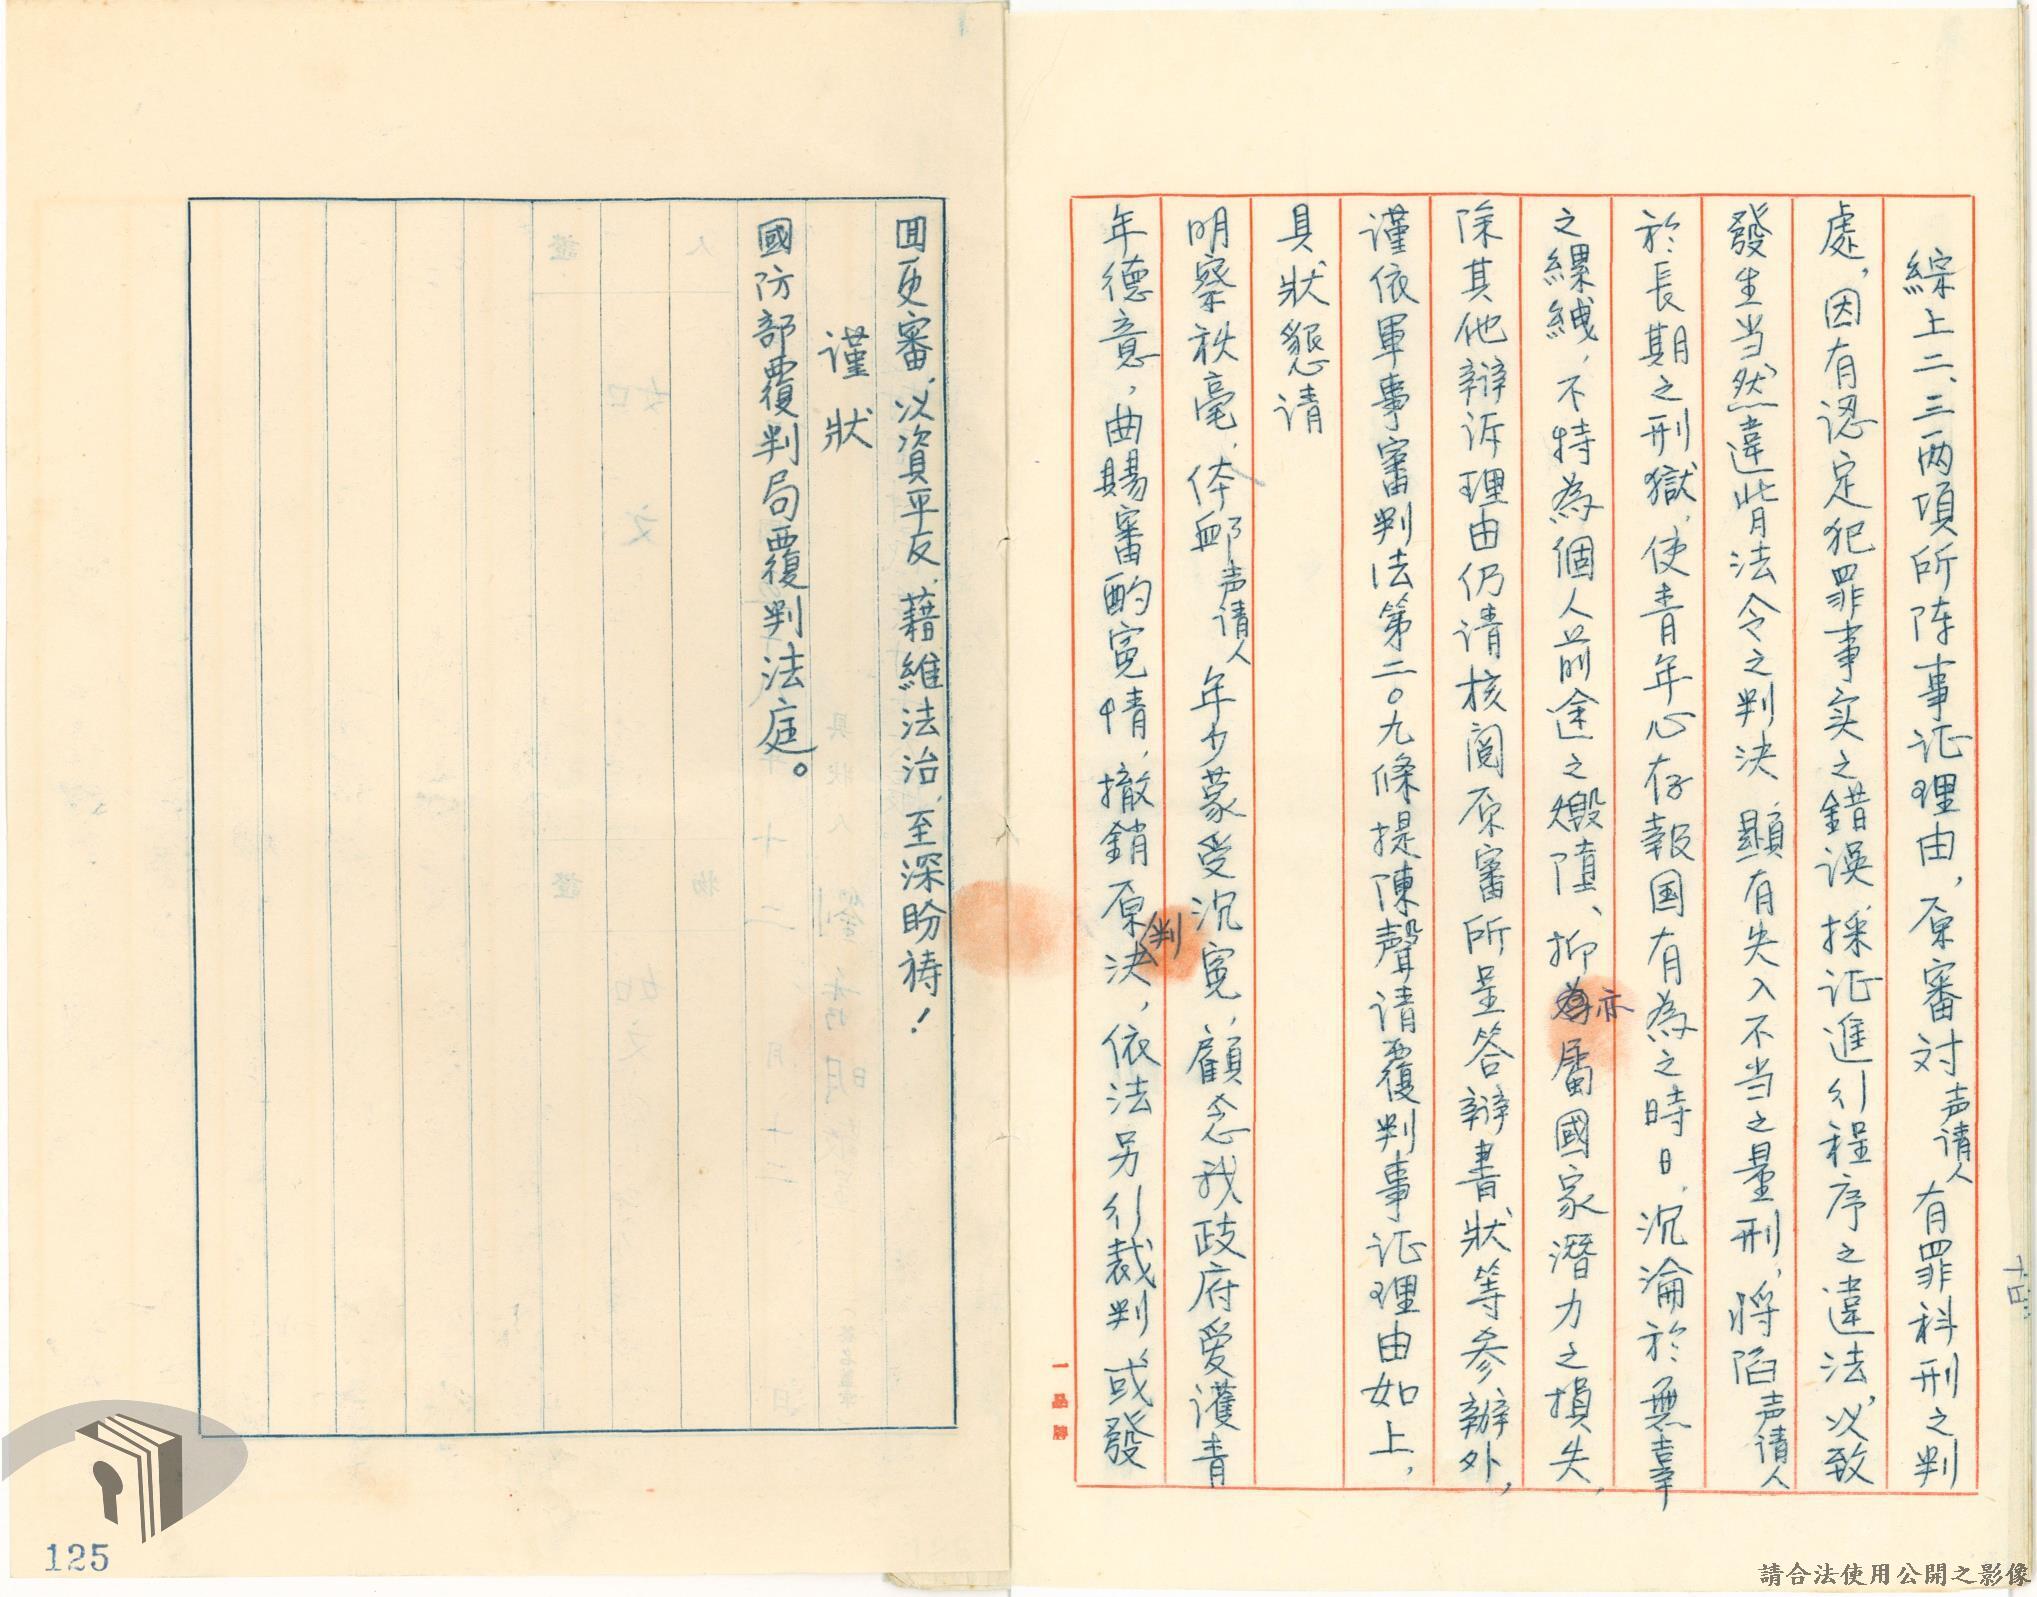 綜上二、三两項所陈事证理由，原審对声请人有罪科刑之判
處，因有認定犯罪事实之錯误，採证進行程序之違法，以致
發生当然違背法令之判決，顯有失入不当之量刑，将陷声请人
於長期之刑獄，使青年心存報国有為之時日，沉淪於無辜
之縲絏，不特為個人前途之燬墮、抑亦屬國家潛力之損失，
除其他辯诉理由仍请核阅原審所呈答辯書狀等參辦外，
謹依軍事審判法第二〇九條提陳聲请覆判事证理由如上，
具狀懇请
明察秋毫，体邮声请人年少蒙受沉寃，顧念我政府爱護青
年德意，曲賜審酌寃情，撤銷原判決，依法另行裁判，或發
囬更審，以資平反，藉維法治，至深盼祷！
謹狀
國防部覆判局覆判法庭。
125
請合法使用公開之影像